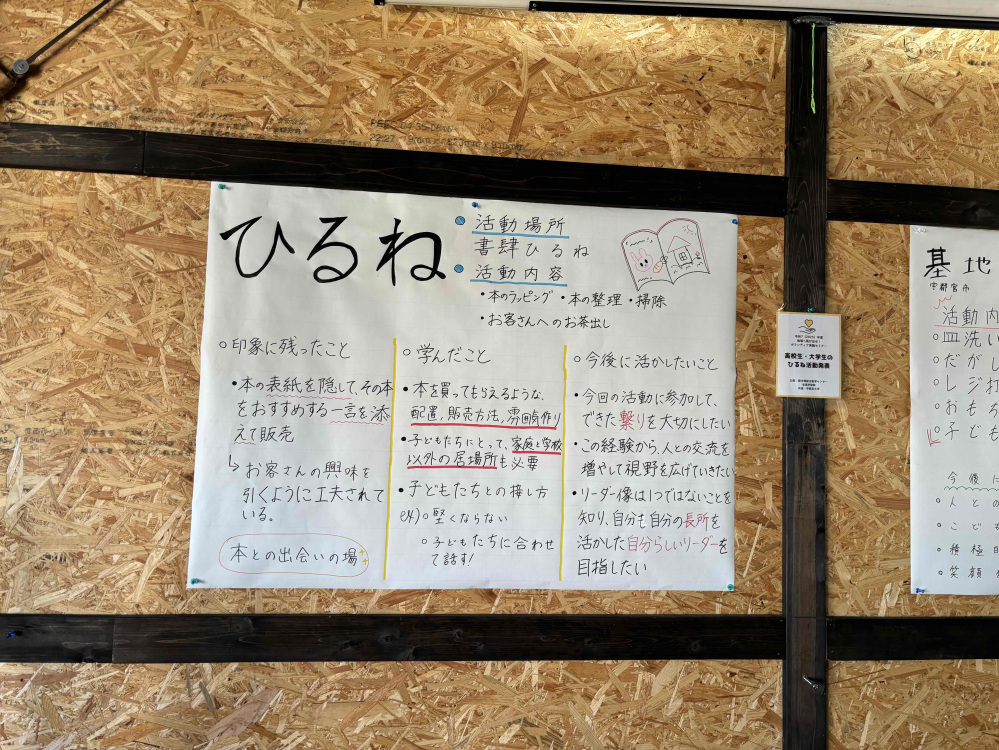 ひるね
活動場所
書肆ひるね
活動内容
・本のラッピング ・本の整理 ・掃除
・お客さんへのお茶出し
○印象に残ったこと
・本の表紙を隠して、その本
をおすすめする一言を添
えて販売
↳お客さんの興味を
引くように工夫されて
いる。
本との出会いの場
○学んだこと
・本を買ってもらえるような、
配置、販売方法、雰囲気作り
・子どもたちにとって、家庭と学校
以外の居場所も必要
・子どもたちとの接し方
ex)○堅くならない
○子どもたちに合わせ
て話す!
○今後に活かしたいこと
・今回の活動に参加して、
できた繋りを大切にしたい
・この経験から、人との交流を
増やして視野を広げていきたい
・リーダー像は1つではないことを
知り、自分も自分の長所を
活かした自分らしいリーダーを
目指したい
高校生・大学生の
ひるね活動発表
基地
宇都宮市
活動内
○皿洗い
○だがし
○レジ打
○おもち
○子ども
今後に
○人との
○こども
○積極的
○笑顔